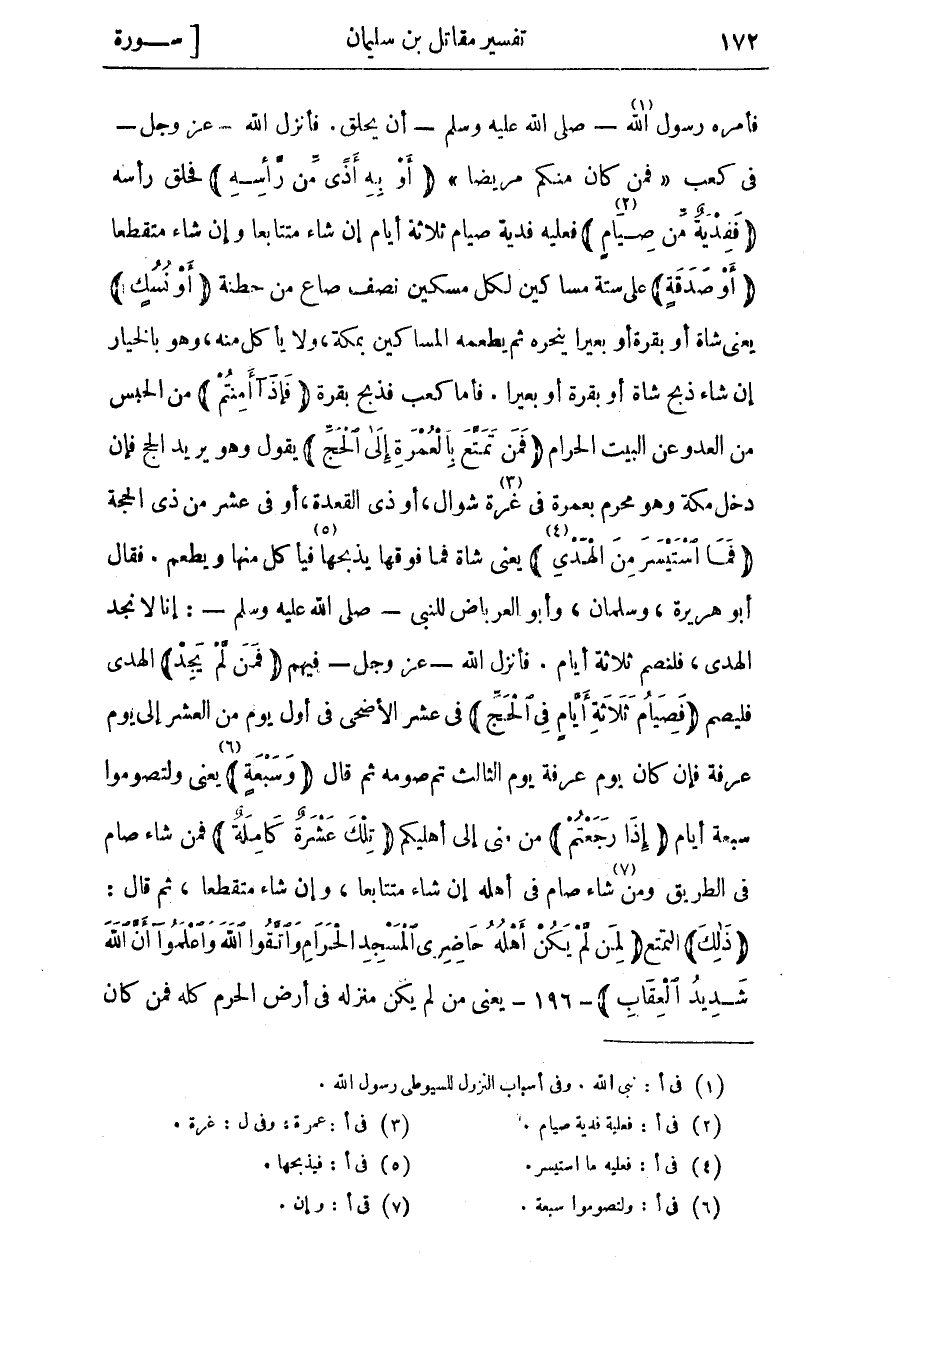 ١٧٢ تفسير مقاتل بن سليمان [ ســورة
فأمره رسول الله (١) — صلى الله عليه وسلم — أن يحلق. فأنزل الله - عز وجل —
فى كعب « فمن كان منكم مريضا » ﴿ أَوْ بِهِ أَذًى مِّن رَّأْسِــهِ ﴾ فحلق رأسه
﴿ فَفِدْيَةٌ مِّن صِــيَامٍ ﴾ (٢) فعليه فدية صيام ثلاثة أيام إن شاء متتابعا وإن شاء متقطعا
﴿ أَوْ صَدَقَةٍ ﴾ على ستة مساكين لكل مسكين نصف صاع من حطنة ﴿ أَوْ نُسُكٍ ﴾
يعنى شاة أو بقرة أو بعيرا ينحره ثم يطعمه المساكين بمكة، ولا يأكل منه، وهو بالخيار
إن شاء ذبح شاة أو بقرة أو بعيرا . فأما كعب فذبح بقرة ﴿ فَإِذَآ أَمِنتُمْ ﴾ من الحبس
من العدو عن البيت الحرام ﴿ فَمَن تَمَتَّعَ بِٱلْعُمْرَةِ إِلَى ٱلْحَجِّ ﴾ يقول وهو يريد الحج فإن
دخل مكة وهو محرم بعمرة فى غرة (٣) شوال، أو ذى القعدة، أو فى عشر من ذى الحجة
﴿ فَمَــا ٱسْتَيْسَرَ مِنَ ٱلْهَدْيِ ﴾ (٤) يعنى شاة فما فوقها يذبحها (٥) فيأكل منها ويطعم . فقال
أبو هريرة ، وسلمان ، وأبو العرباض للنبى — صلى الله عليه وسلم — : إنا لا نجد
الهدى ، فلنصم ثلاثة أيام . فأنزل الله —عز وجل— فيهم ﴿ فَمَن لَّمْ يَجِدْ ﴾ الهدى
فليصم ﴿ فَصِيَامُ ثَلَٰثَةِ أَيَّامٍ فِى ٱلْحَجِّ ﴾ فى عشر الأضحى فى أول يوم من العشر إلى يوم
عرفة فإن كان يوم عرفة يوم الثالث تم صومه ثم قال ﴿ وَسَبْعَةٍ ﴾ (٦) يعنى ولتصوموا
سبعة أيام ﴿ إِذَا رَجَعْتُمْ ﴾ من منى إلى أهليكم ﴿ تِلْكَ عَشَرَةٌ كَامِلَةٌ ﴾ فمن شاء صام
فى الطريق ومن (٧) شاء صام فى أهله إن شاء متتابعا ، وإن شاء متقطعا ، ثم قال :
﴿ ذَٰلِكَ ﴾ التمتع ﴿ لِمَن لَّمْ يَكُنْ أَهْلُهُۥ حَاضِرِى ٱلْمَسْجِدِ ٱلْحَرَامِ وَٱتَّقُوا ٱللَّهَ وَٱعْلَمُوٓا أَنَّ ٱللَّهَ
شَــدِيدُ ٱلْعِقَابِ ﴾ - ١٩٦ - يعنى من لم يكن منزله فى أرض الحرم كله فمن كان
(١) فى أ : نبى الله . وفى أسباب النزول للسيوطى رسول الله .
(٢) فى أ : فعلية فدية صيام . (٣) فى أ : عمرة ، وفى ل : غرة .
(٤) فى أ : فعليه ما استيسر . (٥) فى أ : فيذبحها .
(٦) فى أ : ولتصوموا سبعة . (٧) فى أ : وإن .